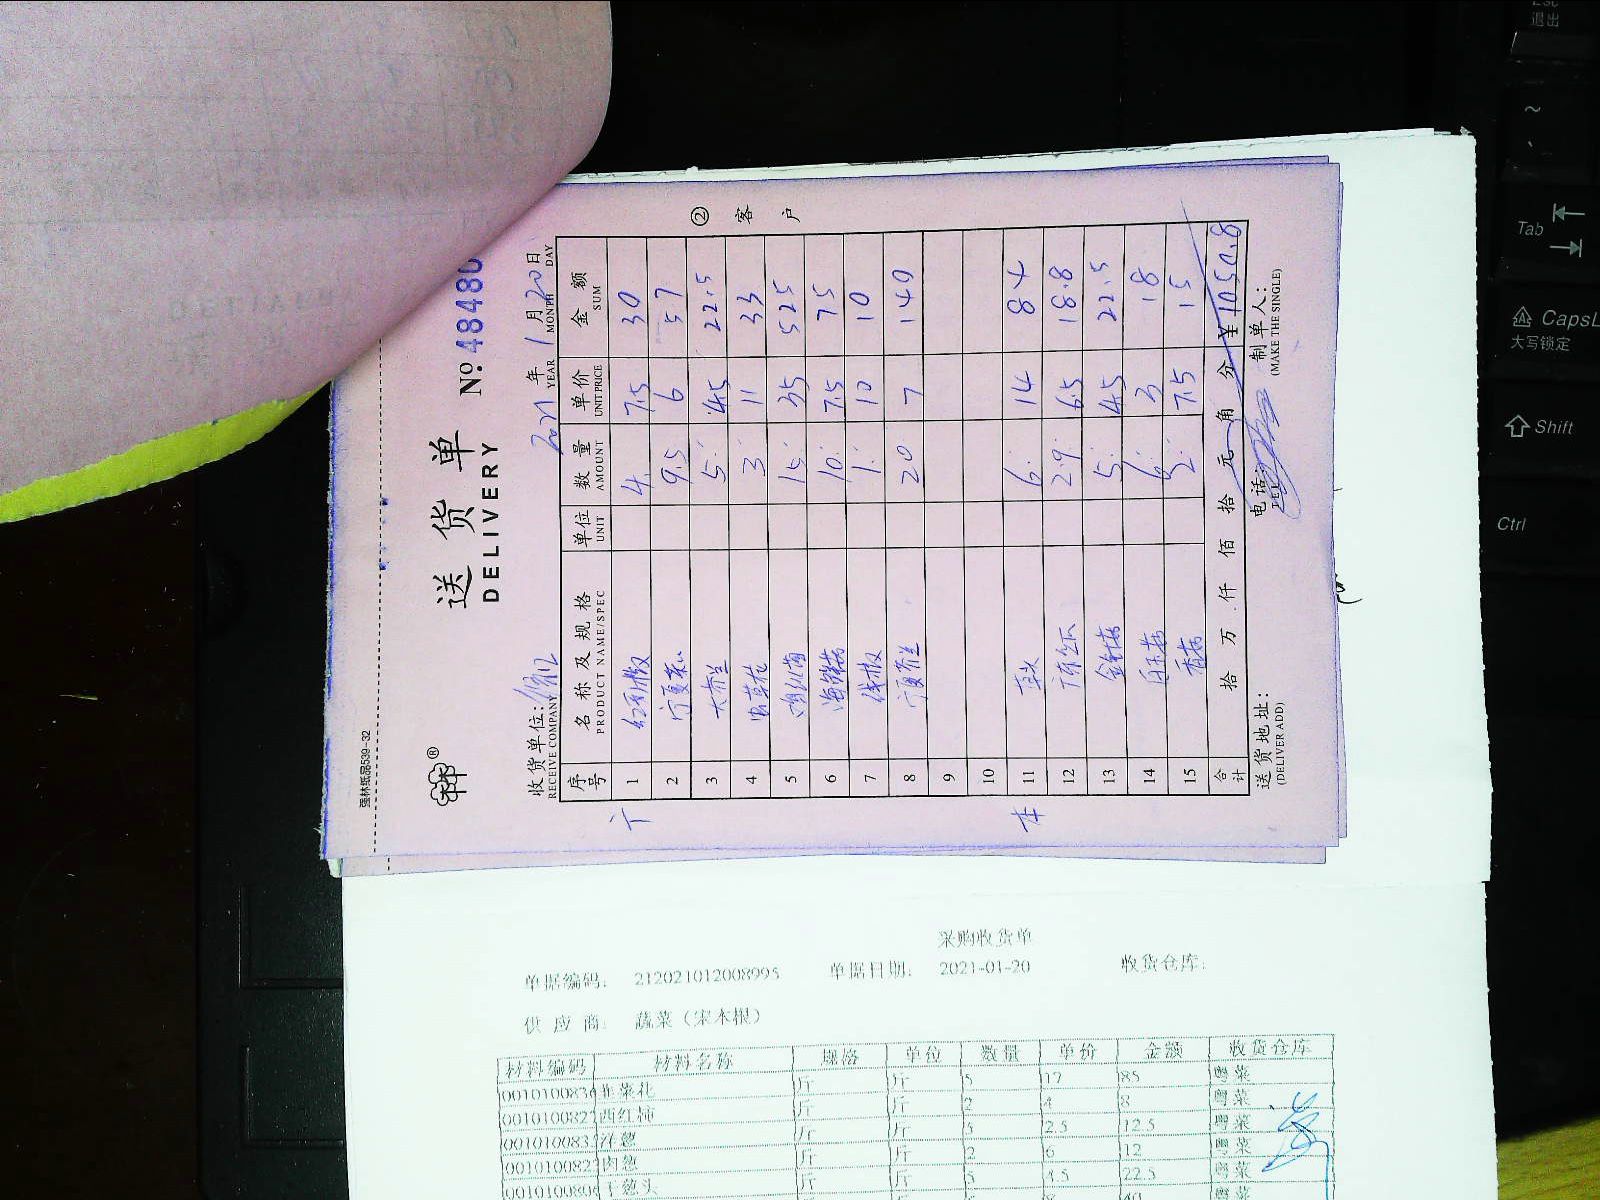 强林纸品539-32
送货单
DELIVERY
No. 48480
收货单位:
RECEIVE COMPANY
2021年1月20日
YEAR MONTH DAY
② 客户
序号 名称及规格 单位 数量 单价 金额
PRODUCT NAME/SPEC UNIT AMOUNT UNIT PRICE SUM
1 4. 7.5 30
2 宁夏菜心 9.5 6 57
3 大芥兰 5. 4.5 22.5
4 3 11 33
5 15. 35 525
6 海鲜菇 10. 7.5 75
7 线椒 1. 10 10
8 宁夏芥兰 20 7 140
9
10
11 6. 14 84
12 2.9. 6.5 18.8
13 金针菇 5. 4.5 22.5
14 白玉菇 6. 3 18
15 香菇 2. 7.5 15
合计 拾万仟佰拾元角分 ¥1050.8
送货地址:
(DELIVER ADD)
电话:
TEL
制单人:
(MAKE THE SINGLE)
采购收货单
单据编码: 212021012008995 单据日期: 2021-01-20 收货仓库:
供应商: 蔬菜(宋本根)
材料编码 材料名称 规格 单位 数量 单价 金额 收货仓库
韭菜花 斤 斤 5 17 85 粤菜
西红柿 斤 斤 2 4 8 粤菜
洋葱 斤 斤 5 2.5 12.5 粤菜
肉葱 斤 斤 2 6 12 粤菜
干葱头 斤 斤 5 4.5 22.5 粤菜
40 粤菜
退出
~
Tab
CapsL
大写锁定
Shift
Ctrl